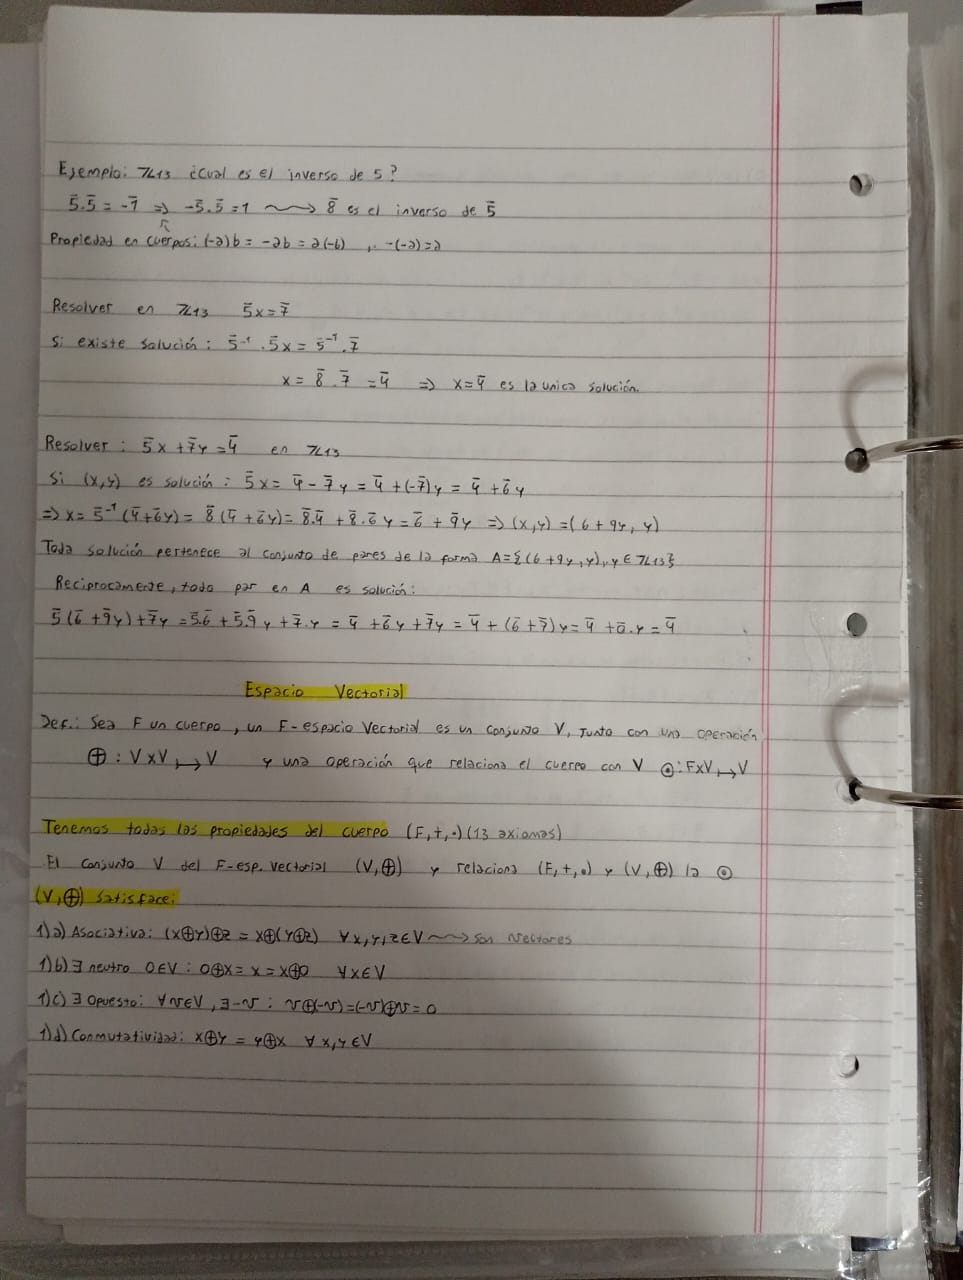 Ejemplo: ℤ13 ¿Cual es el inverso de 5?
5̄.5̄ = -1̄ ⇒ -5̄.5̄ = 1 ⟿ 8̄ es el inverso de 5̄
Propiedad en cuerpos: (-a)b = -ab = a(-b) ,, -(-a) = a
Resolver en ℤ13 5̄x = 7̄
Si existe solución: 5̄⁻¹.5̄x = 5̄⁻¹.7̄
x = 8̄.7̄ = 4̄ ⇒ x = 4̄ es la unica solución.
Resolver: 5̄x + 7̄y = 4̄ en ℤ13
Si (x,y) es solución: 5̄x = 4̄ - 7̄y = 4̄ + (-7̄)y = 4̄ + 6̄y
⇒ x = 5̄⁻¹(4̄ + 6̄y) = 8̄(4̄ + 6̄y) = 8̄.4̄ + 8̄.6̄y = 6̄ + 9̄y ⇒ (x,y) = (6 + 9y, y)
Toda solución pertenece al conjunto de pares de la forma A = {(6 + 9y, y), y ∈ ℤ13}
Reciprocamente, todo par en A es solución:
5̄(6̄ + 9̄y) + 7̄y = 5̄.6̄ + 5̄.9̄y + 7̄.y = 4̄ + 6̄y + 7̄y = 4̄ + (6̄ + 7̄)y = 4̄ + 0̄.y = 4̄
Espacio Vectorial
Def.: Sea F un cuerpo, un F-espacio Vectorial es un conjunto V, Junto con una operación
⊕: V×V ↦ V y una operación que relaciona el cuerpo con V ⊙: F×V ↦ V
Tenemos todas las propiedades del cuerpo (F,+,·) (13 axiomas)
El conjunto V del F-esp. Vectorial (V,⊕) y relaciona (F,+,·) y (V,⊕) la ⊙
(V,⊕) satisface:
1)a) Asociativa: (x⊕y)⊕z = x⊕(y⊕z) ∀x,y,z∈V ⟿ son Vectores
1)b) ∃ neutro 0∈V : 0⊕x = x = x⊕0 ∀x∈V
1)c) ∃ Opuesto: ∀v∈V, ∃-v : v⊕(-v) = (-v)⊕v = 0
1)d) Conmutatividad: x⊕y = y⊕x ∀x,y∈V